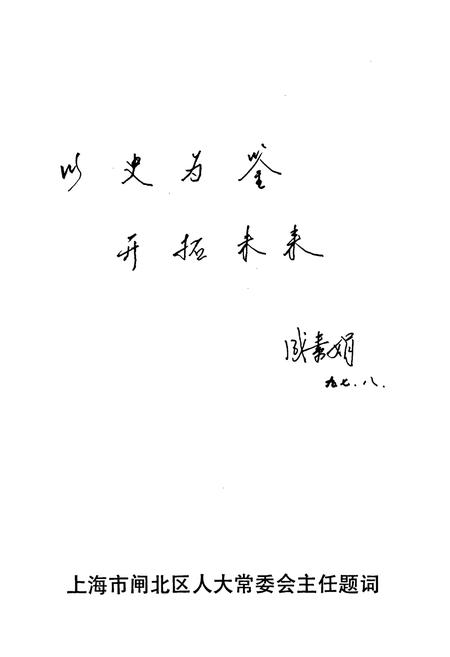 以史为鉴
开拓未来
素娟
九七.八.
上海市闸北区人大常委会主任题词